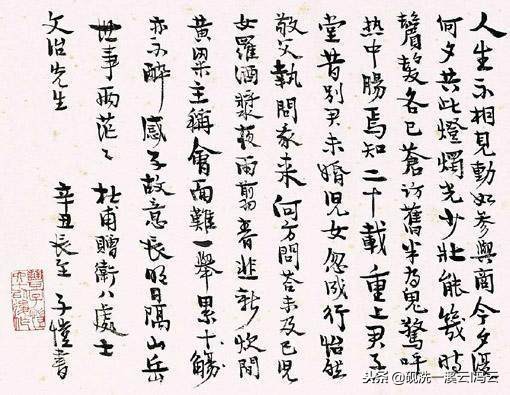 人生不相見動如參與商今夕復
何夕共此燈燭光少壯能幾時
鬢髮各已蒼訪舊半為鬼驚呼
热中腸焉知二十載重上君子
堂昔別君未婚兒女忽成行怡然
敬父執問我來何方問答未及已兒
女羅酒漿夜雨翦春韭新炊間
黃粱主稱會面難一舉累十觴
亦不醉感子故意長明日隔山岳
世事兩茫々 杜甫贈衛八處士
文治先生 辛丑長至 子愷書
头条 @砚洗一溪云冯云